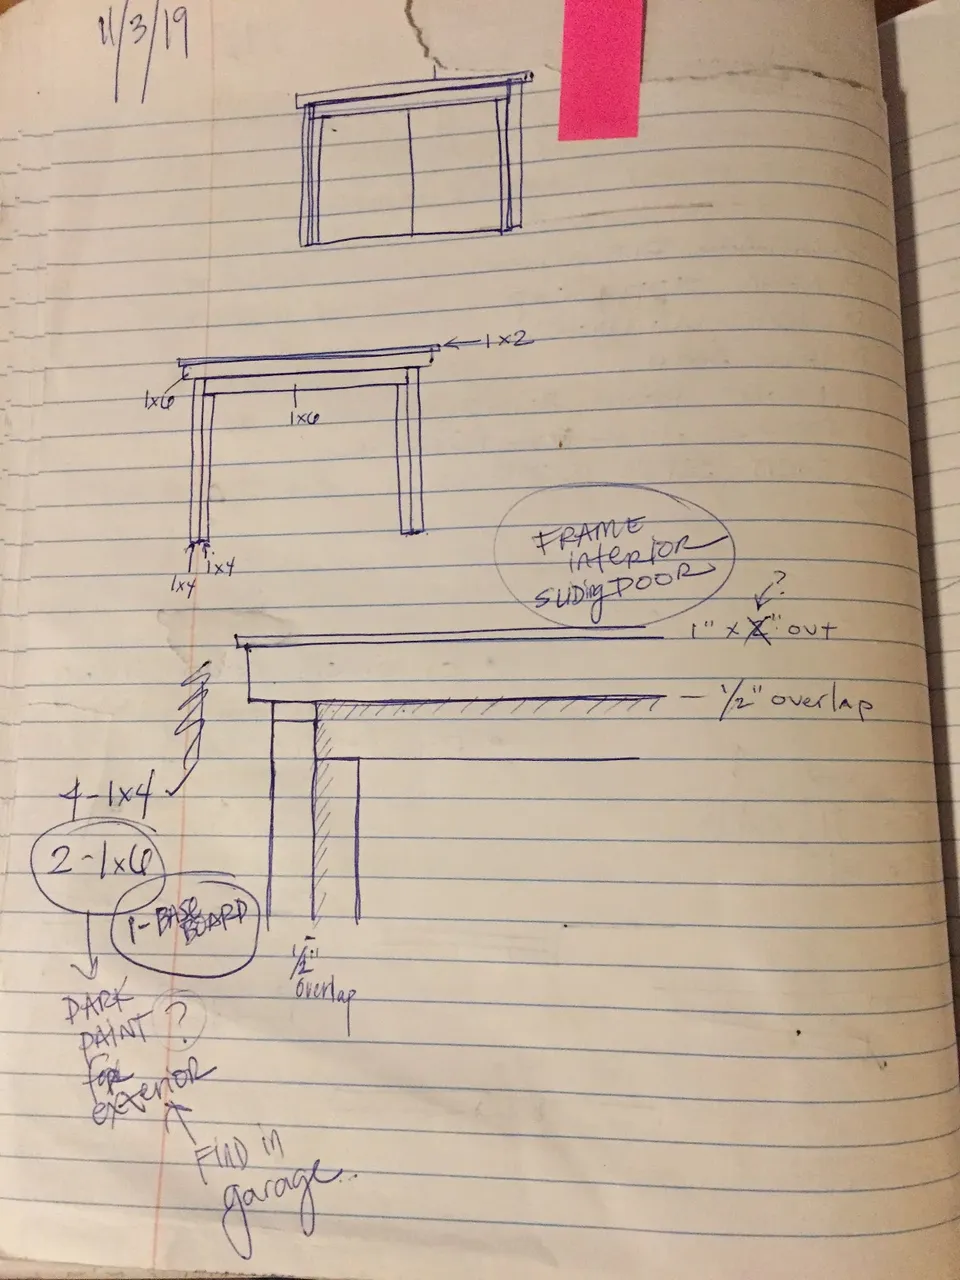 11/3/19
1x2
1x6
1x6
1x4 1x4
FRAME
interior
Sliding DOOR
?
1" x 2" out
1/2" overlap
4-1x4
2-1x6
1-BASE
BOARD
1/2"
overlap
DARK
PAINT ?
FOR
exterior
FIND in
garage..